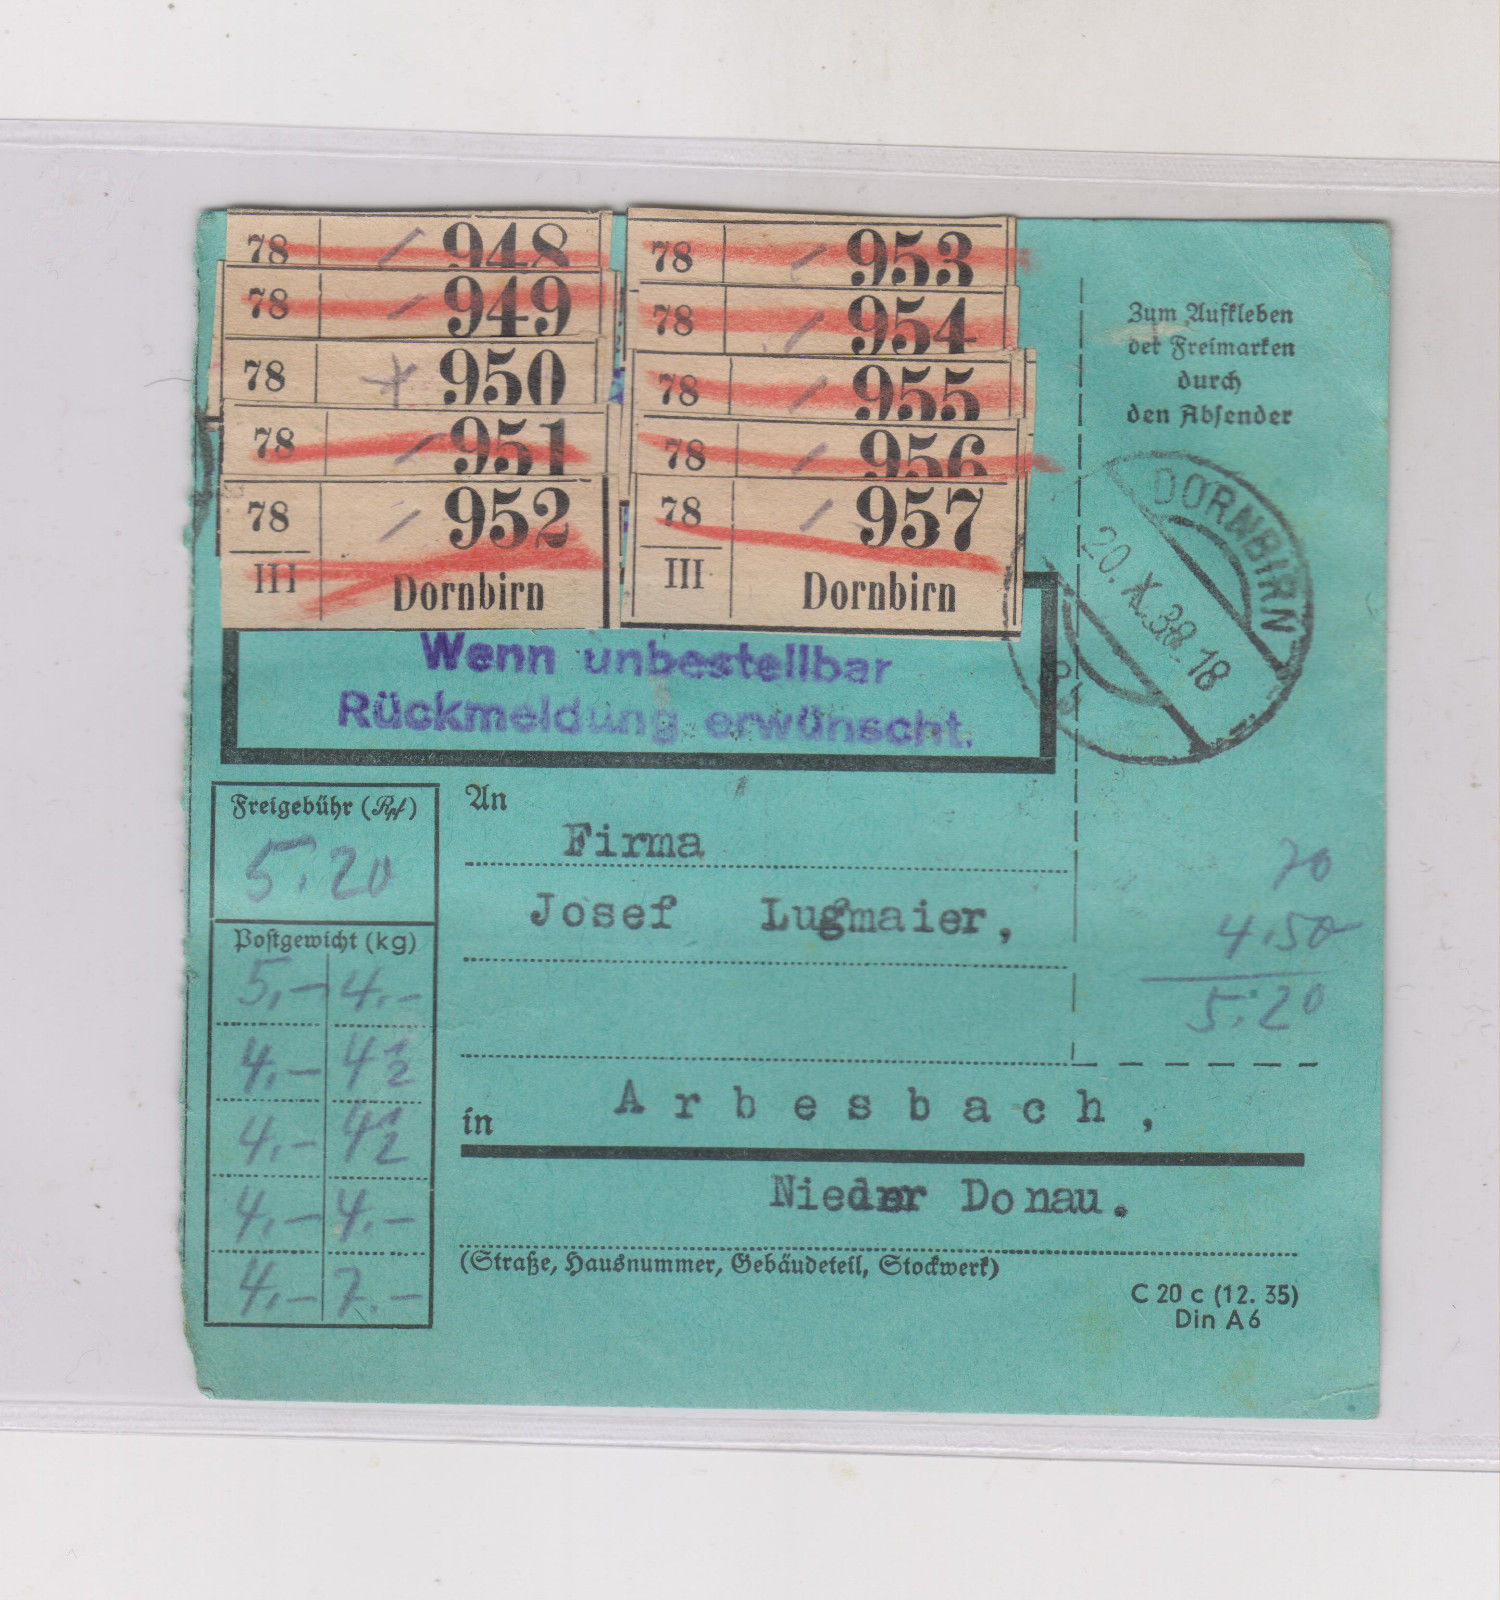 78 948
78 949
78 950
78 951
78 952
III Dornbirn
78 953
78 954
78 955
78 956
78 957
III Dornbirn
Zum Aufkleben
der Freimarken
durch
den Absender
DORNBIRN
20.X.38.18
Wenn unbestellbar
Rückmeldung erwünscht.
Freigebühr (Rpf)
5.20
Postgewicht (kg)
5,- 4.-
4.- 4 1/2
4.- 4 1/2
4.- 4.-
4.- 7.-
An
Firma
Josef Lugmaier,
70
4.50
5.20
in Arbesbach,
Nieder Donau.
(Straße, Hausnummer, Gebäudeteil, Stockwerk)
C 20 c (12. 35)
Din A6